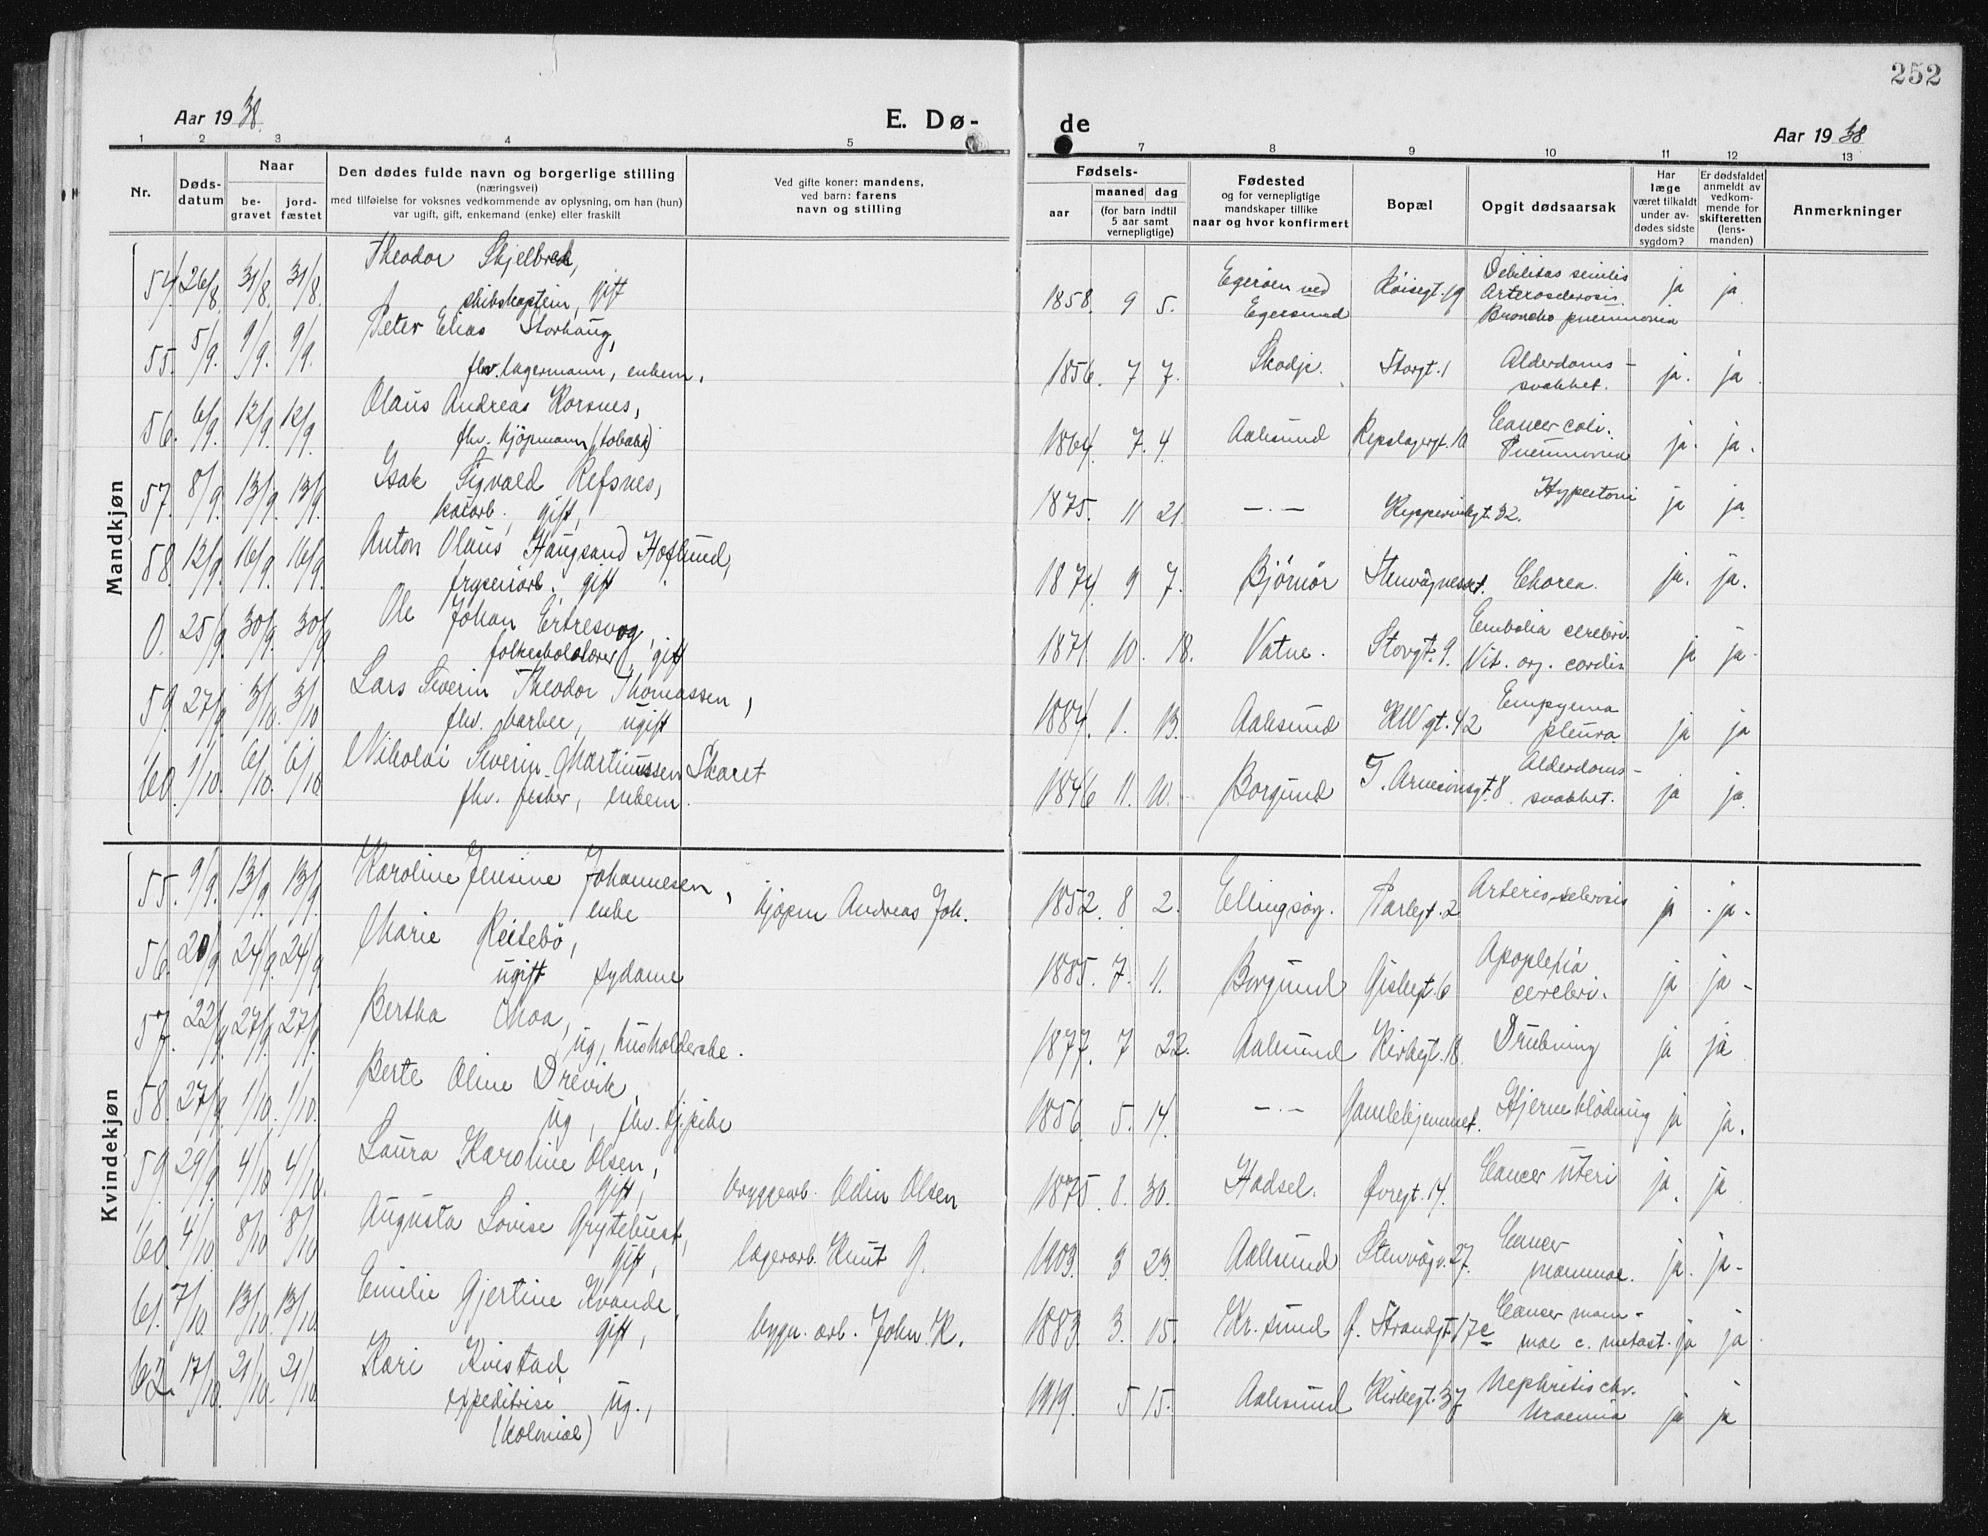 252
Aar 1938.
E. Dø-
de
Aar 1938
1 2 3 4 5 7 8 9 10 11 12 13
Nr.
Døds-
datum
Naar
be-
gravet
jord-
fæstet
Den dødes fulde navn og borgerlige stilling
(næringsvei)
med tilføielse for voksnes vedkommende av oplysning, om han (hun)
var ugift, gift, enkemand (enke) eller fraskilt
Ved gifte koner: mandens,
ved barn: farens
navn og stilling
Fødsels-
aar
maaned
dag
(for barn indtil
5 aar samt
vernepligtige)
Fødested
og for vernepligtige
mandskaper tillike
naar og hvor konfirmert
Bopæl
Opgit dødsaarsak
Har
læge
været tilkaldt
under av-
dødes sidste
sygdom?
Er dødsfaldet
anmeldt av
vedkom-
mende for
skifteretten
(lens-
manden)
Anmerkninger
Mandkjøn
54. 26/8. 31/8. 31/8. Theodor Skjelbred,
skibskaptein, gift
1858. 9 5. Egerøen ved
Egersund
19
Debilitas senilis
Arterosclerosis
Broncho pneumonia
ja ja.
55. 5/9. 9/9. 9/9. Peter Elias Storhaug,
fhv. lagermann, enkem.
1856. 7 7. Skodje. Storgt. 1 Alderdoms-
svakhet. ja. ja
56. 6/9. 12/9. 12/9. Olaus Andreas Korsnes,
fhv. kjøpmann (tobakk)
1864. 7. 4. Aalesund Repslagergt. 10 Cancer coli.
Pneumonia ja. ja.
57. 8/9. 13/9. 13/9. Isak Sigvald Refsnes,
kaiarb., gift,
1875. 11 21. —"— 32. Hypertoni ja ja.
58. 12/9. 16/9. 16/9. Anton Olaus Haugsand Hoflund,
fryseriarb., gift
1874. 9 7. Bjørnør Chorea. ja. ja.
0. 25/9. 30/9. 30/9. Ole Johan Ertresvog,
folkeskolelærer, gift
1871 10. 18. Vatne. Storgt. 9. Embolia cerebri.
Vit. org. cordis ja ja.
59. 27/9. 3/10. 3/10 Lars Severin Theodor Thomassen,
fhv. barber, ugift
1884. 1. 13. Aalesund KWgt. 42 Empyema
pleura. ja ja
60. 1/10. 6/10. 6/10 Nikolai Severin Martinussen Skaret
fhv. fisker, enkem.
1846 11. 10. Borgund T. Arnesønsgt. 8 Alderdoms-
svakhet. ja ja.
Kvindekjøn
55. 9/9. 13/9 13/9 Karoline Jensine Johannesen,
enke
kjøpm Andreas Joh.
1852. 8 2. Ellingsøy. Parkgt. 2 Arteriosclerosis ja ja.
56. 20/9 24/9. 24/9 Marie Reitebø,
ugift sydame
1885. 7. 11. Borgund 6 Apoplexia
cerebri. ja ja
57. 22/9 27/9. 27/9. Bertha Moa,
ug, husholderske.
1877. 7 22. Aalesund Kirkegt. 18. Drukning ja ja
58. 27/9. 1/10. 1/10. Berte Oline Drevik,
ug, fhv. tj.pike
1856. 5. 14. —"— Gamlehjemmet. Hjerneblødning ja ja.
59. 29/9. 4/10 4/10. Laura Karoline Olsen,
gift,
bryggearb. Odin Olsen
1875. 8. 30. Hadsel. Øvregt. 14. Cancer uteri ja. ja
60. 4/10 8/10 8/10 Augusta Lovise Grytebust,
gift,
lagerarb. Knut G.
1903. 3 23. Aalesund Stenvågv. 27. Cancer
mammae. ja. ja.
61. 7/10. 13/10. 13/10. Emilie Gjertine Kvande,
gift,
bygn. arb. John K.
1883. 3. 15. Kr. sund Ø. Strandgt. 17c Cancer mam-
mae c. metast. ja ja
62. 17/10. 21/10. 21/10 Kari Kvistad
expeditrise ug.,
(kolonial)
1919. 5 15. Aalesund Kirkegt. 37 Nephritis chr.
Uraemia ja ja